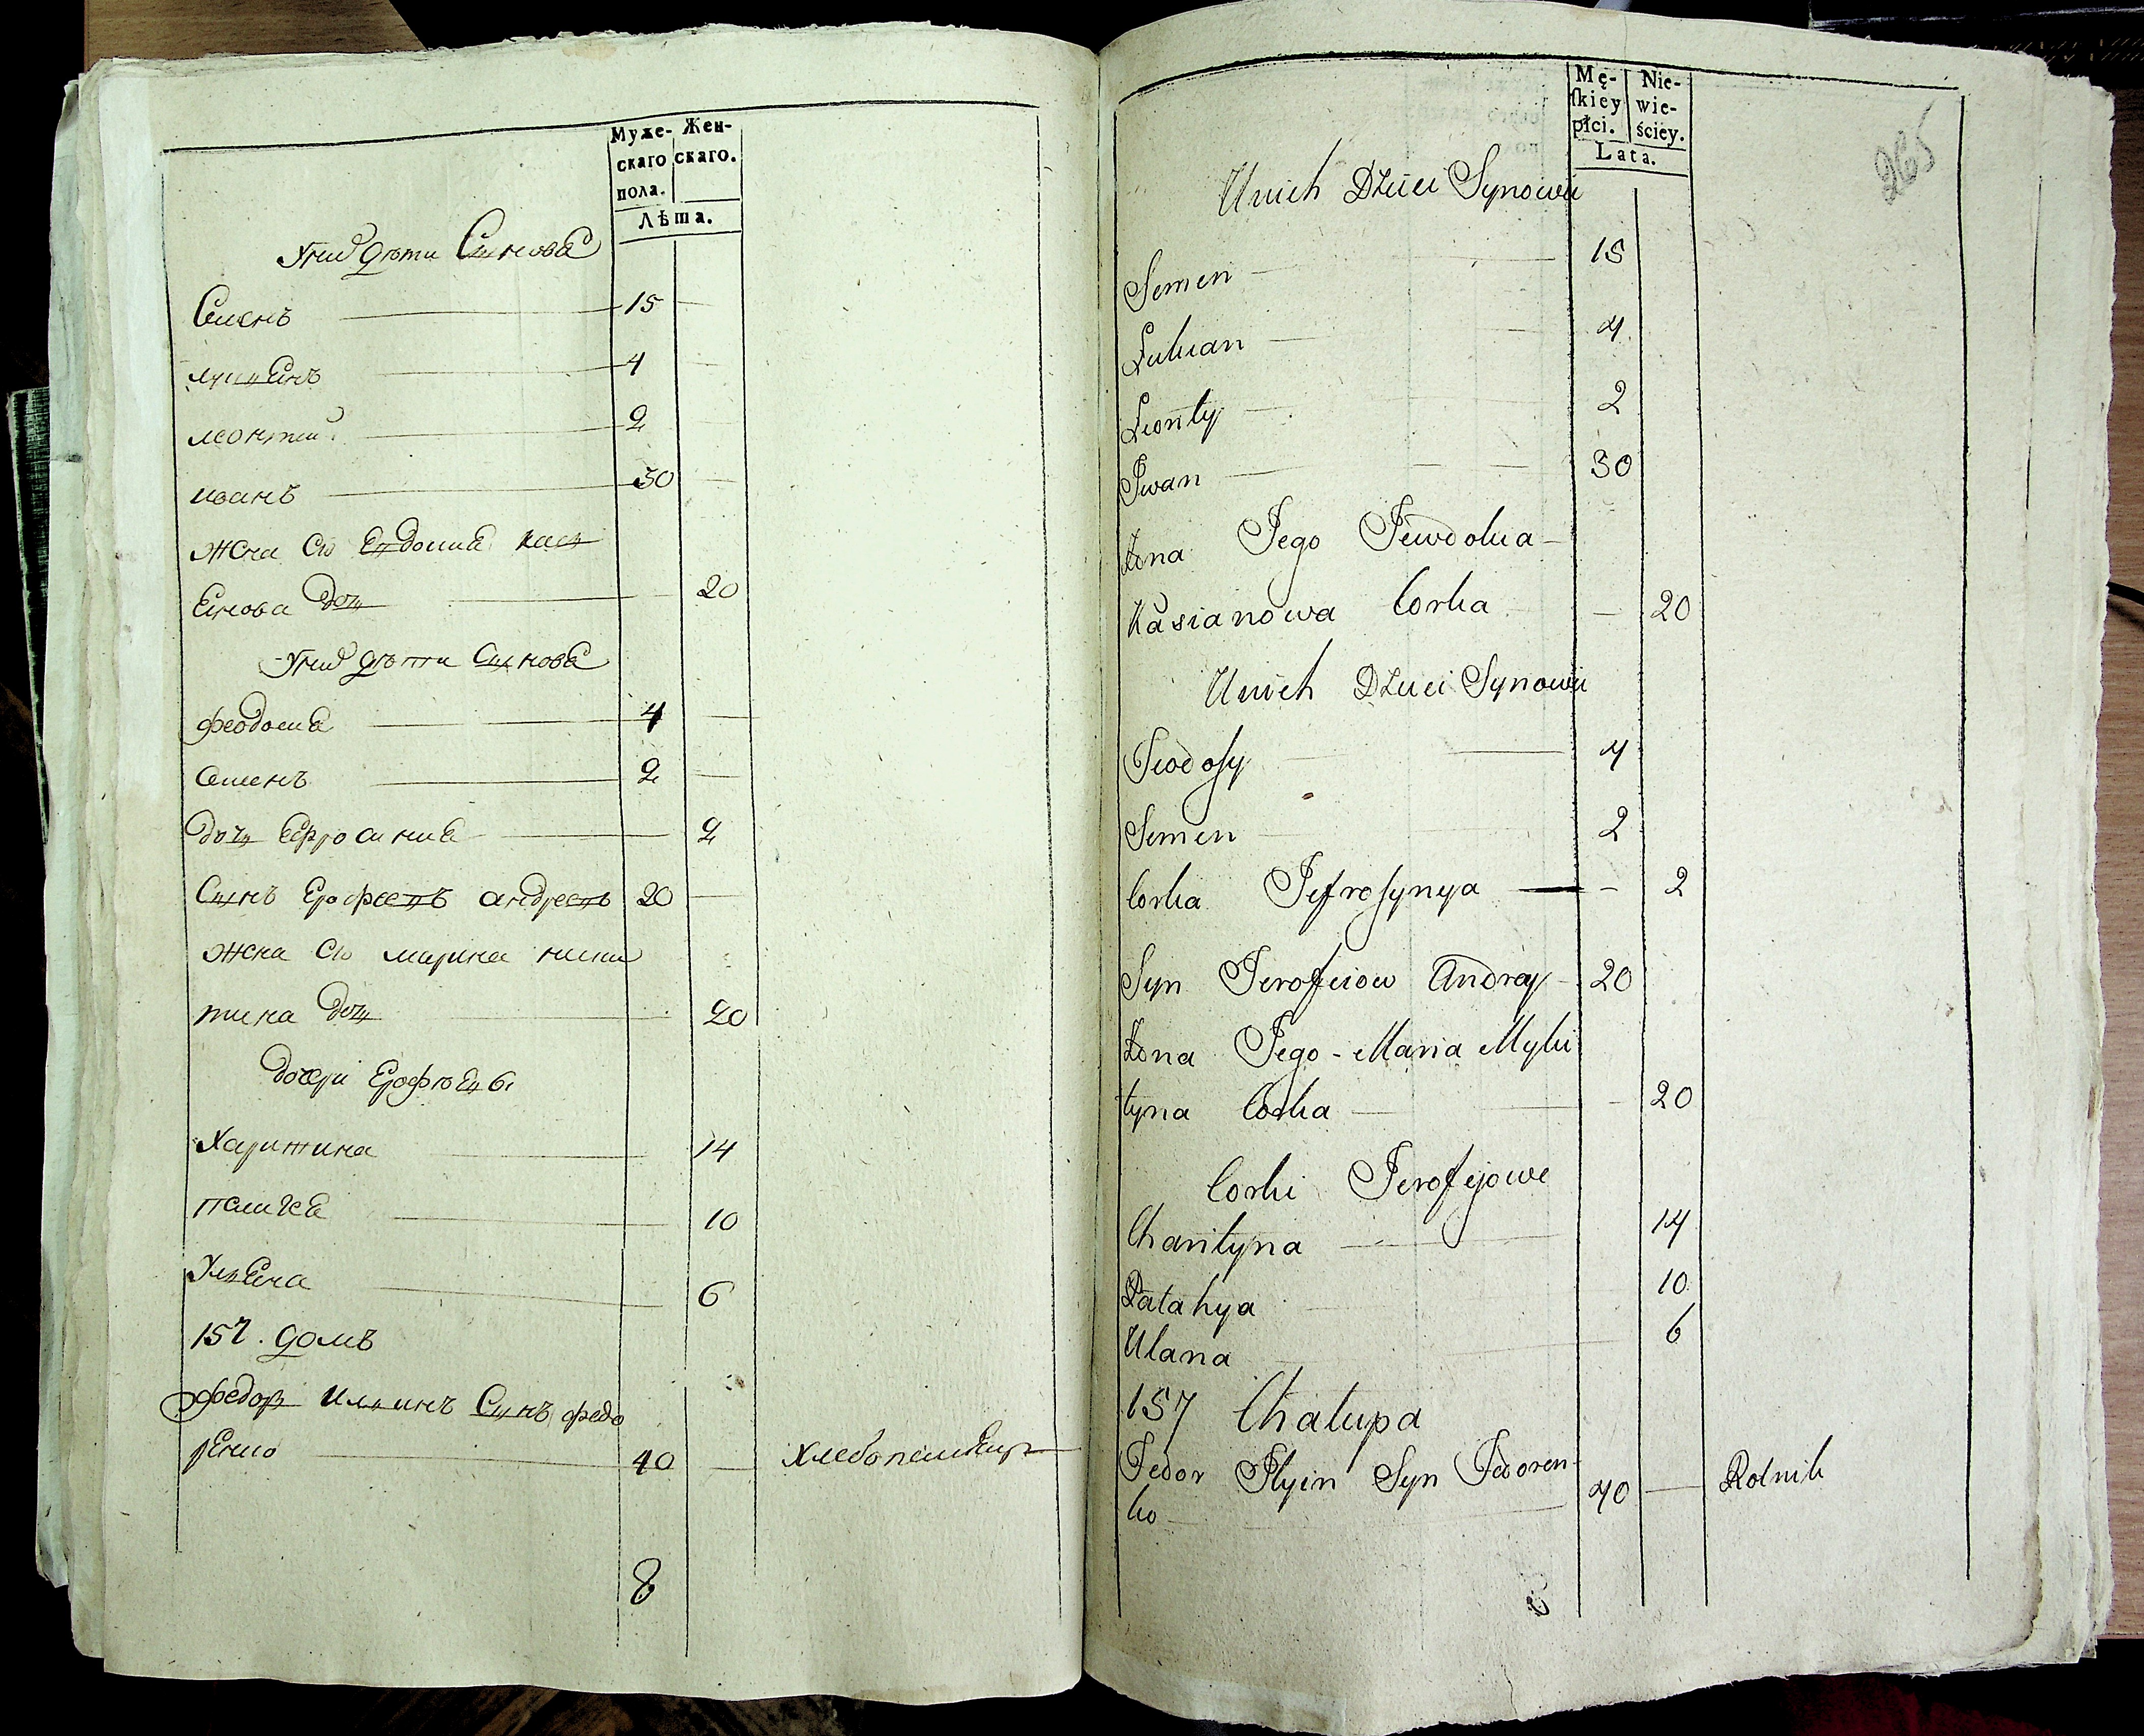 Муже- Жен-
скаго скаго.
пола.
Лѣта.
У них дѣти Синове
Семенъ 15
лукіенъ 4
леонтий 2
иванъ 30
жена его Евдокия кась
енова дочь 20
У них дѣти Синове
феодосие 4
семенъ 2
дочь Ефросиние 2
Синъ Ерофеевъ андреевъ 20
жена его марина ники
тина дочь 20
дочери Ерофѣевы
Харитина 14
10
Улиена 6
157. домъ
федор илиинъ Синъ федо
ренко 40 хлебопашецъ
8
Mę- Nie-
ſkiey wie-
płci. ściey.
Lata.
265
Unich Dżieci Synowie
Semen 15
Łukian 4
Leonty 2
Iwan 30
Żona Jego Jewdokia
Kasianowa Corka 20
Unich Dżieci Synowie
Feodoſy 4
Semen 2
Corka Jefroſynya 2
Syn Jerofeiow Andrey 20
Żona Jego Maria Myki
tyna Corka 20
Corki Jerofejowe
Charityna 14
Palahya 10
Ulana 6
157 Chałupa
Fedor Ilyin Syn Fedoren-
ko 40 Rolnik